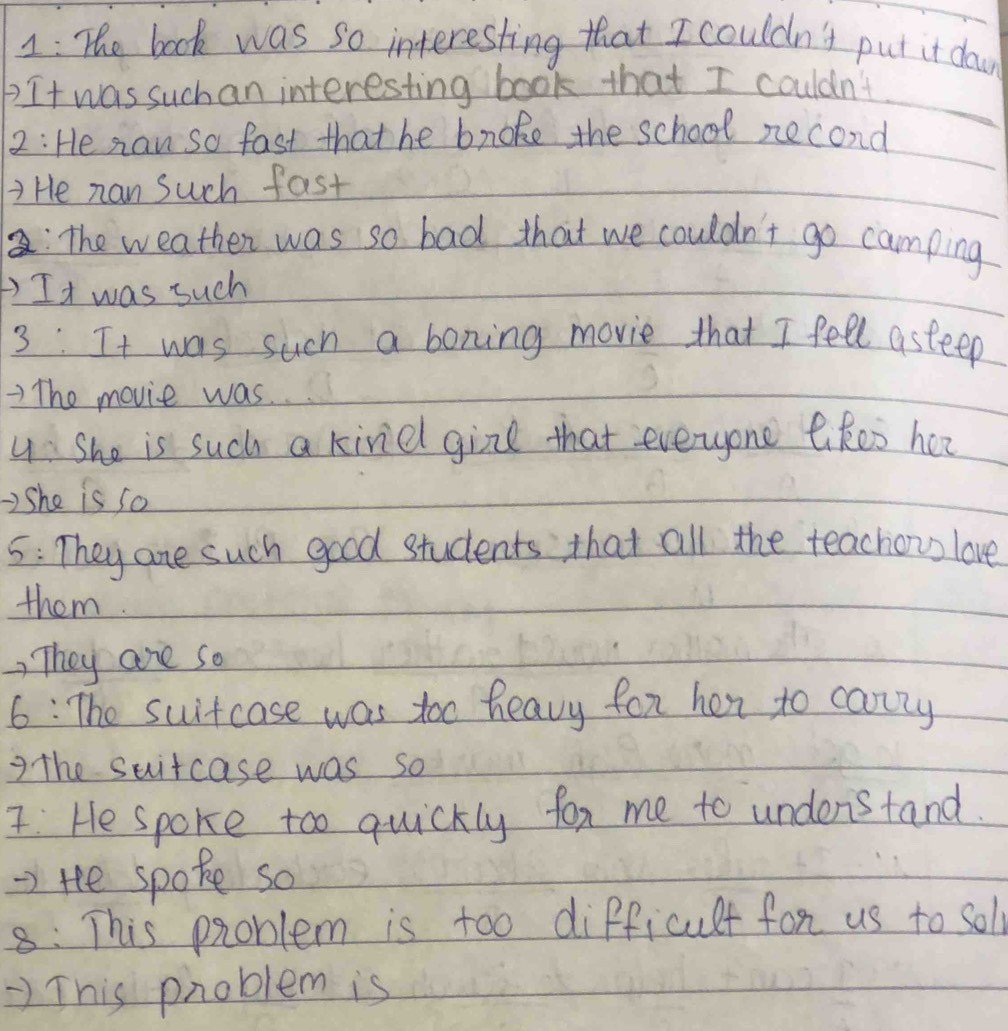 1: The book was so interesting that I couldn't put it down
→It was such an interesting book that I couldn't
2: He ran so fast that he broke the school record
→ He ran such fast
2: The weather was so bad that we couldn't go camping
→ It was such
3 : It was such a boring movie that I fell asleep
→ The movie was...
4: She is such a kind girl that everyone likes her
→ She is so
5: They are such good students that all the teachers love
them.
→ They are so
6 : The suitcase was too heavy for her to carry
→ The suitcase was so
7: He spoke too quickly for me to understand.
→ He spoke so
8: This problem is too difficult for us to sol
→ This problem is